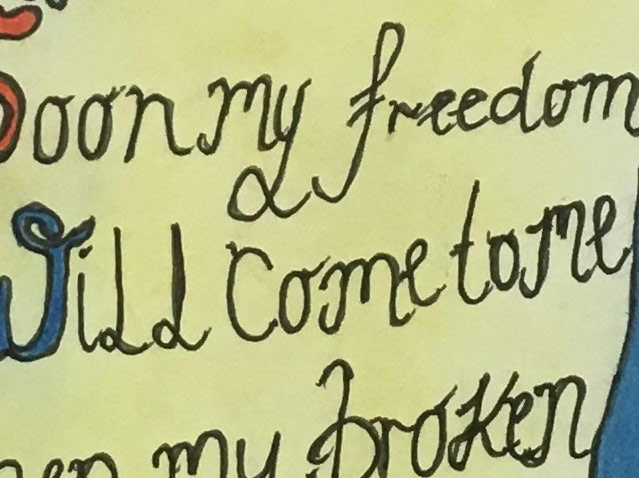 Soon my freedom
Will Come to me
hen my broken